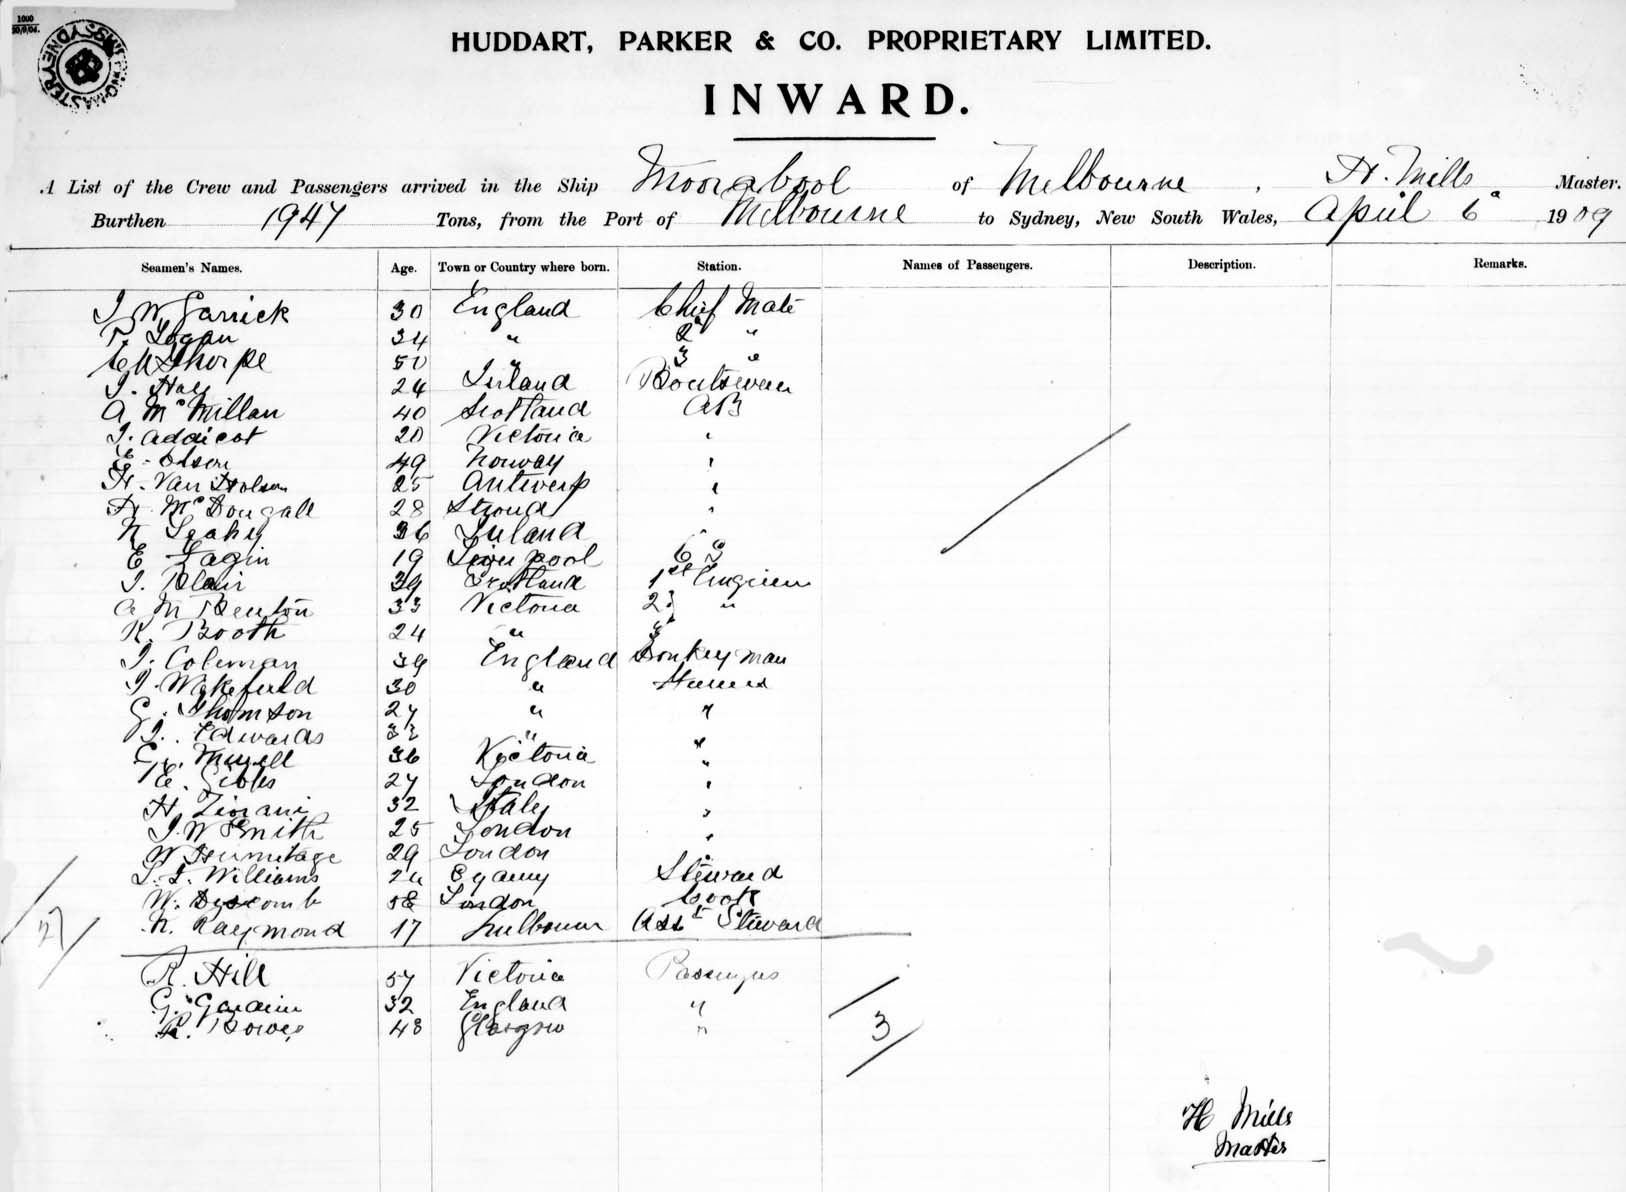 1000
HUDDART, PARKER & CO. PROPRIETARY LIMITED.
INWARD.
A List of the Crew and Passengers arrived in the Ship Moorabool of Melbourne, H. Mills Master.
Burthen 1947 Tons, from the Port of Melbourne to Sydney, New South Wales, April 6 1909
Seamen's Names. Age. Town or Country where born. Station. Names of Passengers. Description. Remarks.
J W Garrick 30 England Chief Mate
Logan 34 " 2 "
Thorpe 50 " 3 "
J. Hay 24 Ireland Boatswain
A McMillan 40 Scotland AB
J. Addicot 20 Victoria "
E. Olson 49 Norway "
H. Van Holsen 25 Antwerp "
H. McDougall 28 Stroud "
N Leahy 36 Ireland "
E Fagin 19 Liverpool
J. Blair 39 Scotland 1st Engineer
A M Benton 33 Victoria 2 "
R. Booth 24 " 3
J. Coleman 39 England Donkeyman
J. Wakefield 30 "
G. Thomson 27 " "
Edwards 33 " "
G. 36 Victoria "
E. Gibbs 27 London "
H. 32 Italy "
J. W Smith 25 London "
W Hermitage 29 London "
J. J. Williams Steward
W. London Cook
N. Raymond 17 Melbourne Asst Steward
27
R. Hill 57 Victoria Passengers
G. 32 England "
R. 48 Glasgow "
3
H Mills
Master